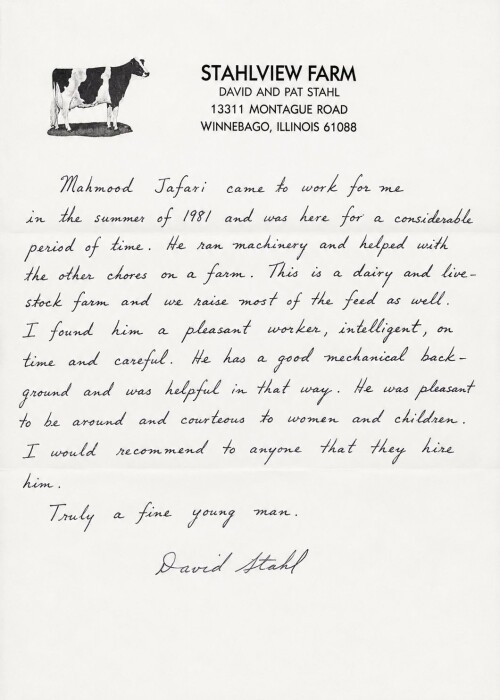 STAHLVIEW FARM
DAVID AND PAT STAHL
13311 MONTAGUE ROAD
WINNEBAGO, ILLINOIS 61088
Mahmood Jafari came to work for me
in the summer of 1981 and was here for a considerable
period of time. He ran machinery and helped with
the other chores on a farm. This is a dairy and live-
stock farm and we raise most of the feed as well.
I found him a pleasant worker, intelligent, on
time and careful. He has a good mechanical back-
ground and was helpful in that way. He was pleasant
to be around and courteous to women and children.
I would recommend to anyone that they hire
him.
Truly a fine young man.
David Stahl